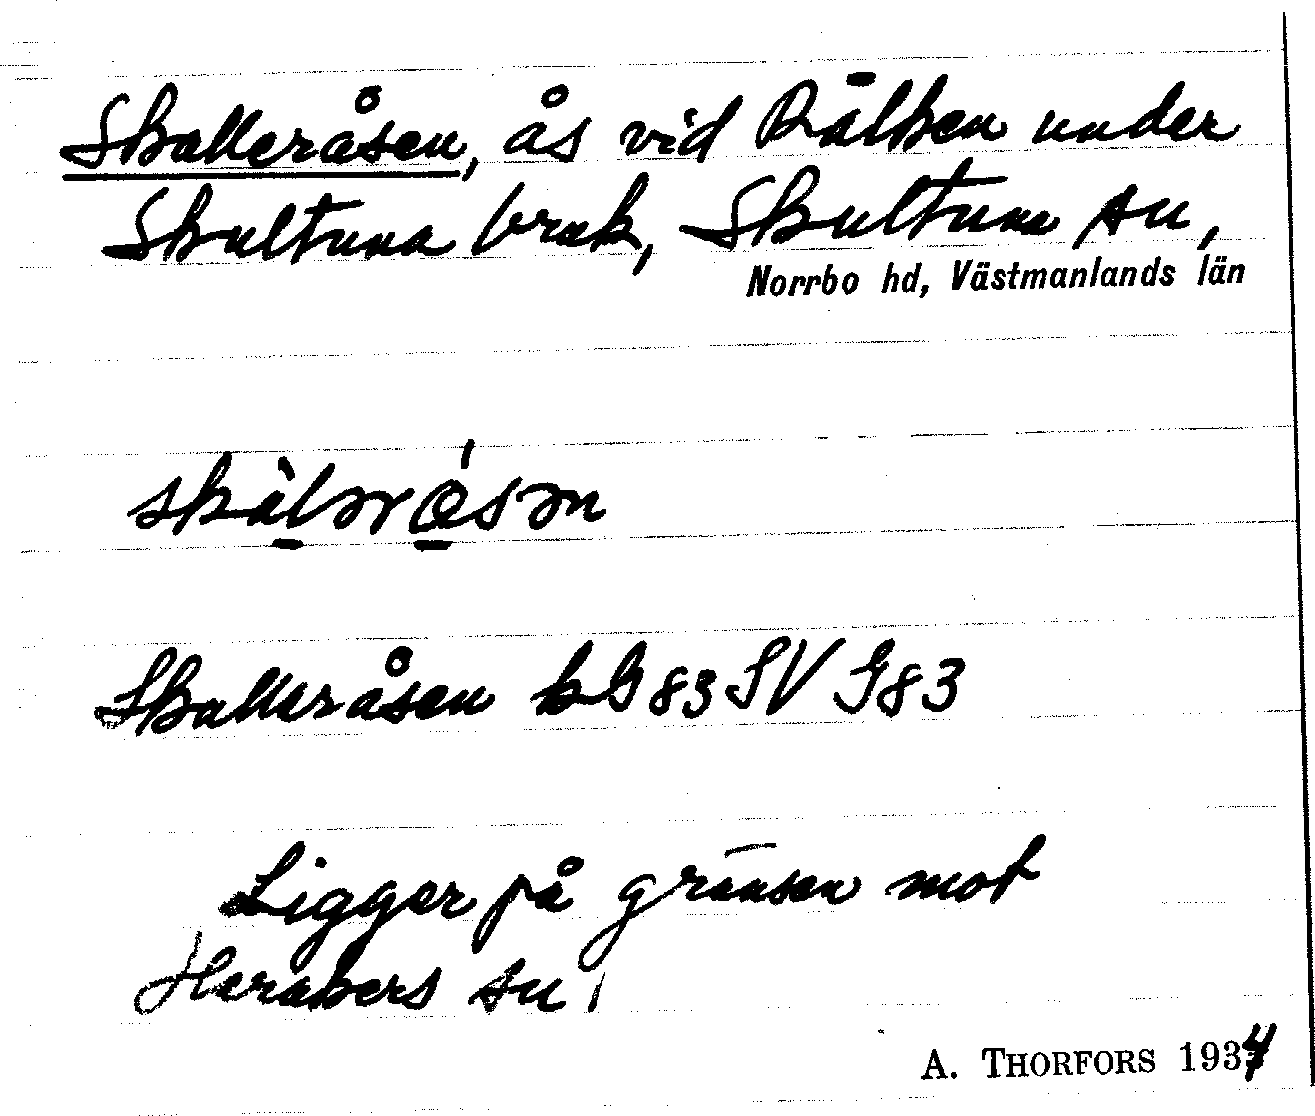 Skalleråsen, ås vid Rälken under
Skultuna bruk, Skultuna sn,
Norrbo hd, Västmanlands län
skàlərǻsən
Skalleråsen kG 83 SV G 83
Ligger på gränsen mot
Harakers sn
A. THORFORS 1934